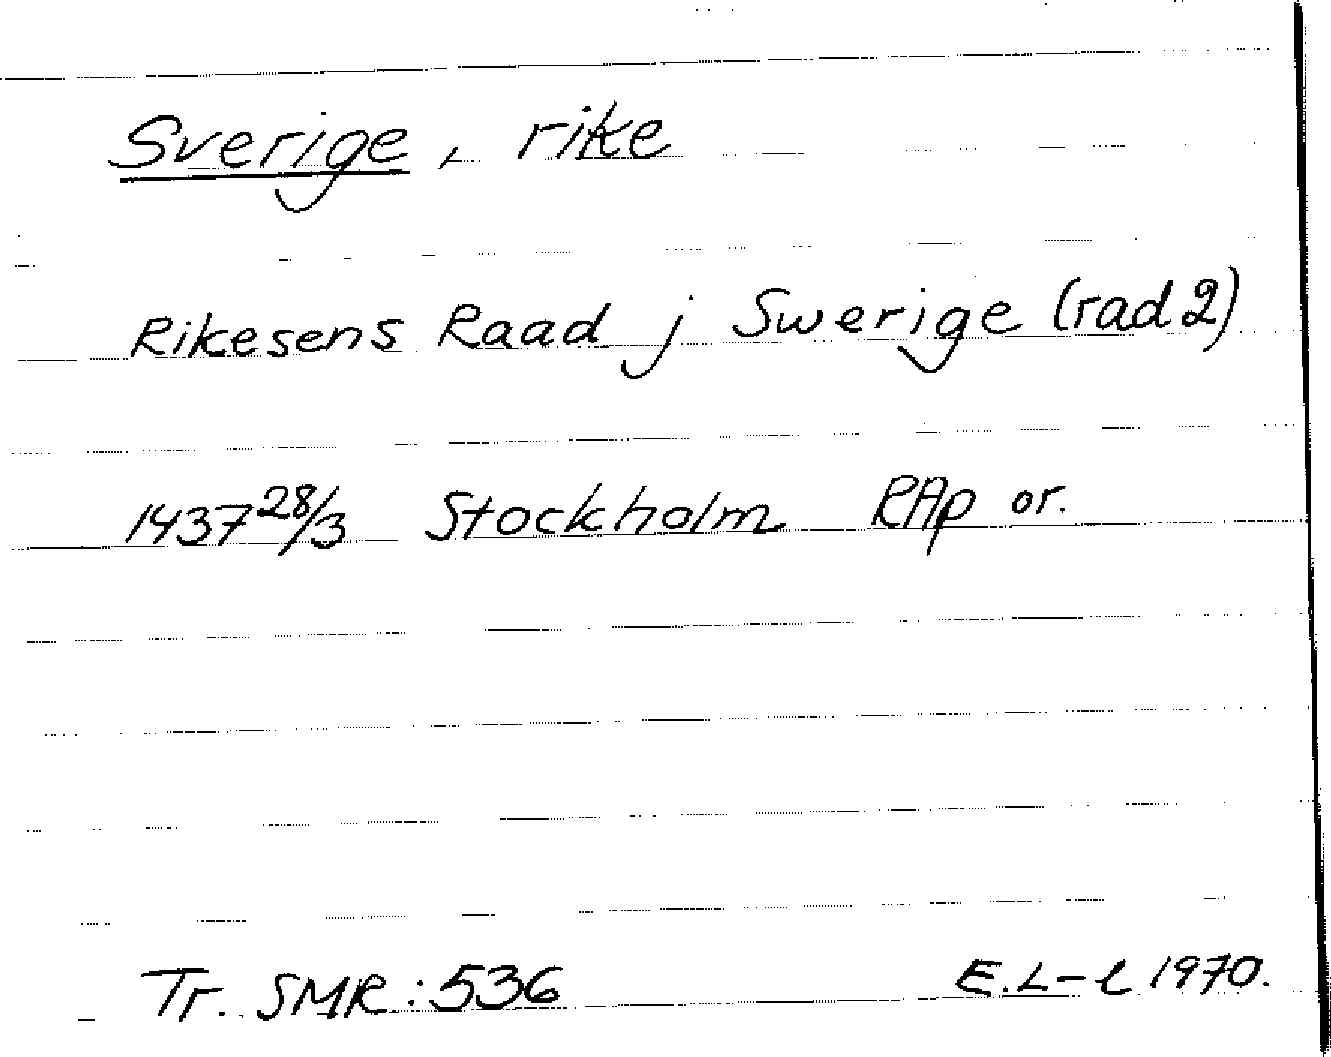 Sverige, rike
Rikesens Raad j Swerige (rad 2)
1437 28/3 Stockholm RAp or.
Tr. SMR: 536 E.L-l 1970.